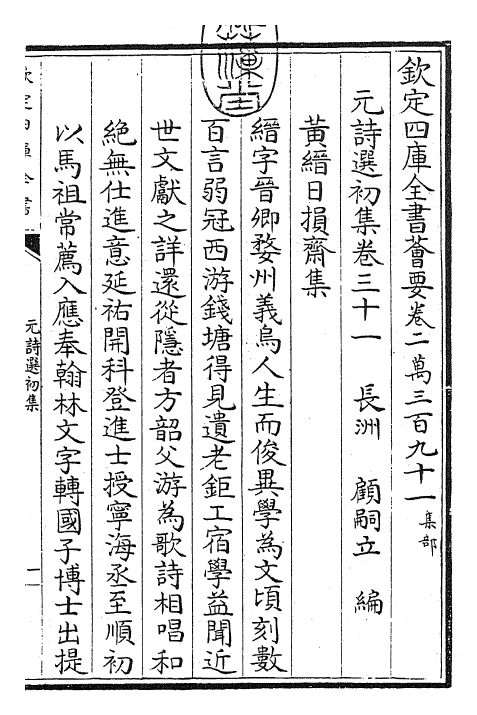 欽定四庫全書薈要卷二萬三百九十一 集部
元詩選初集卷三十一 長洲 顧嗣立 編
黃縉日損齋集
縉字晉卿婺州義烏人生而俊異學為文頃刻數
百言弱冠西游錢塘得見遺老鉅工宿學益聞近
世文獻之詳還從隱者方韶父游為歌詩相唱和
絶無仕進意延祐開科登進士授寧海丞至順初
以馬祖常薦入應奉翰林文字轉國子博士出提
欽定四庫全書
元詩選初集
一